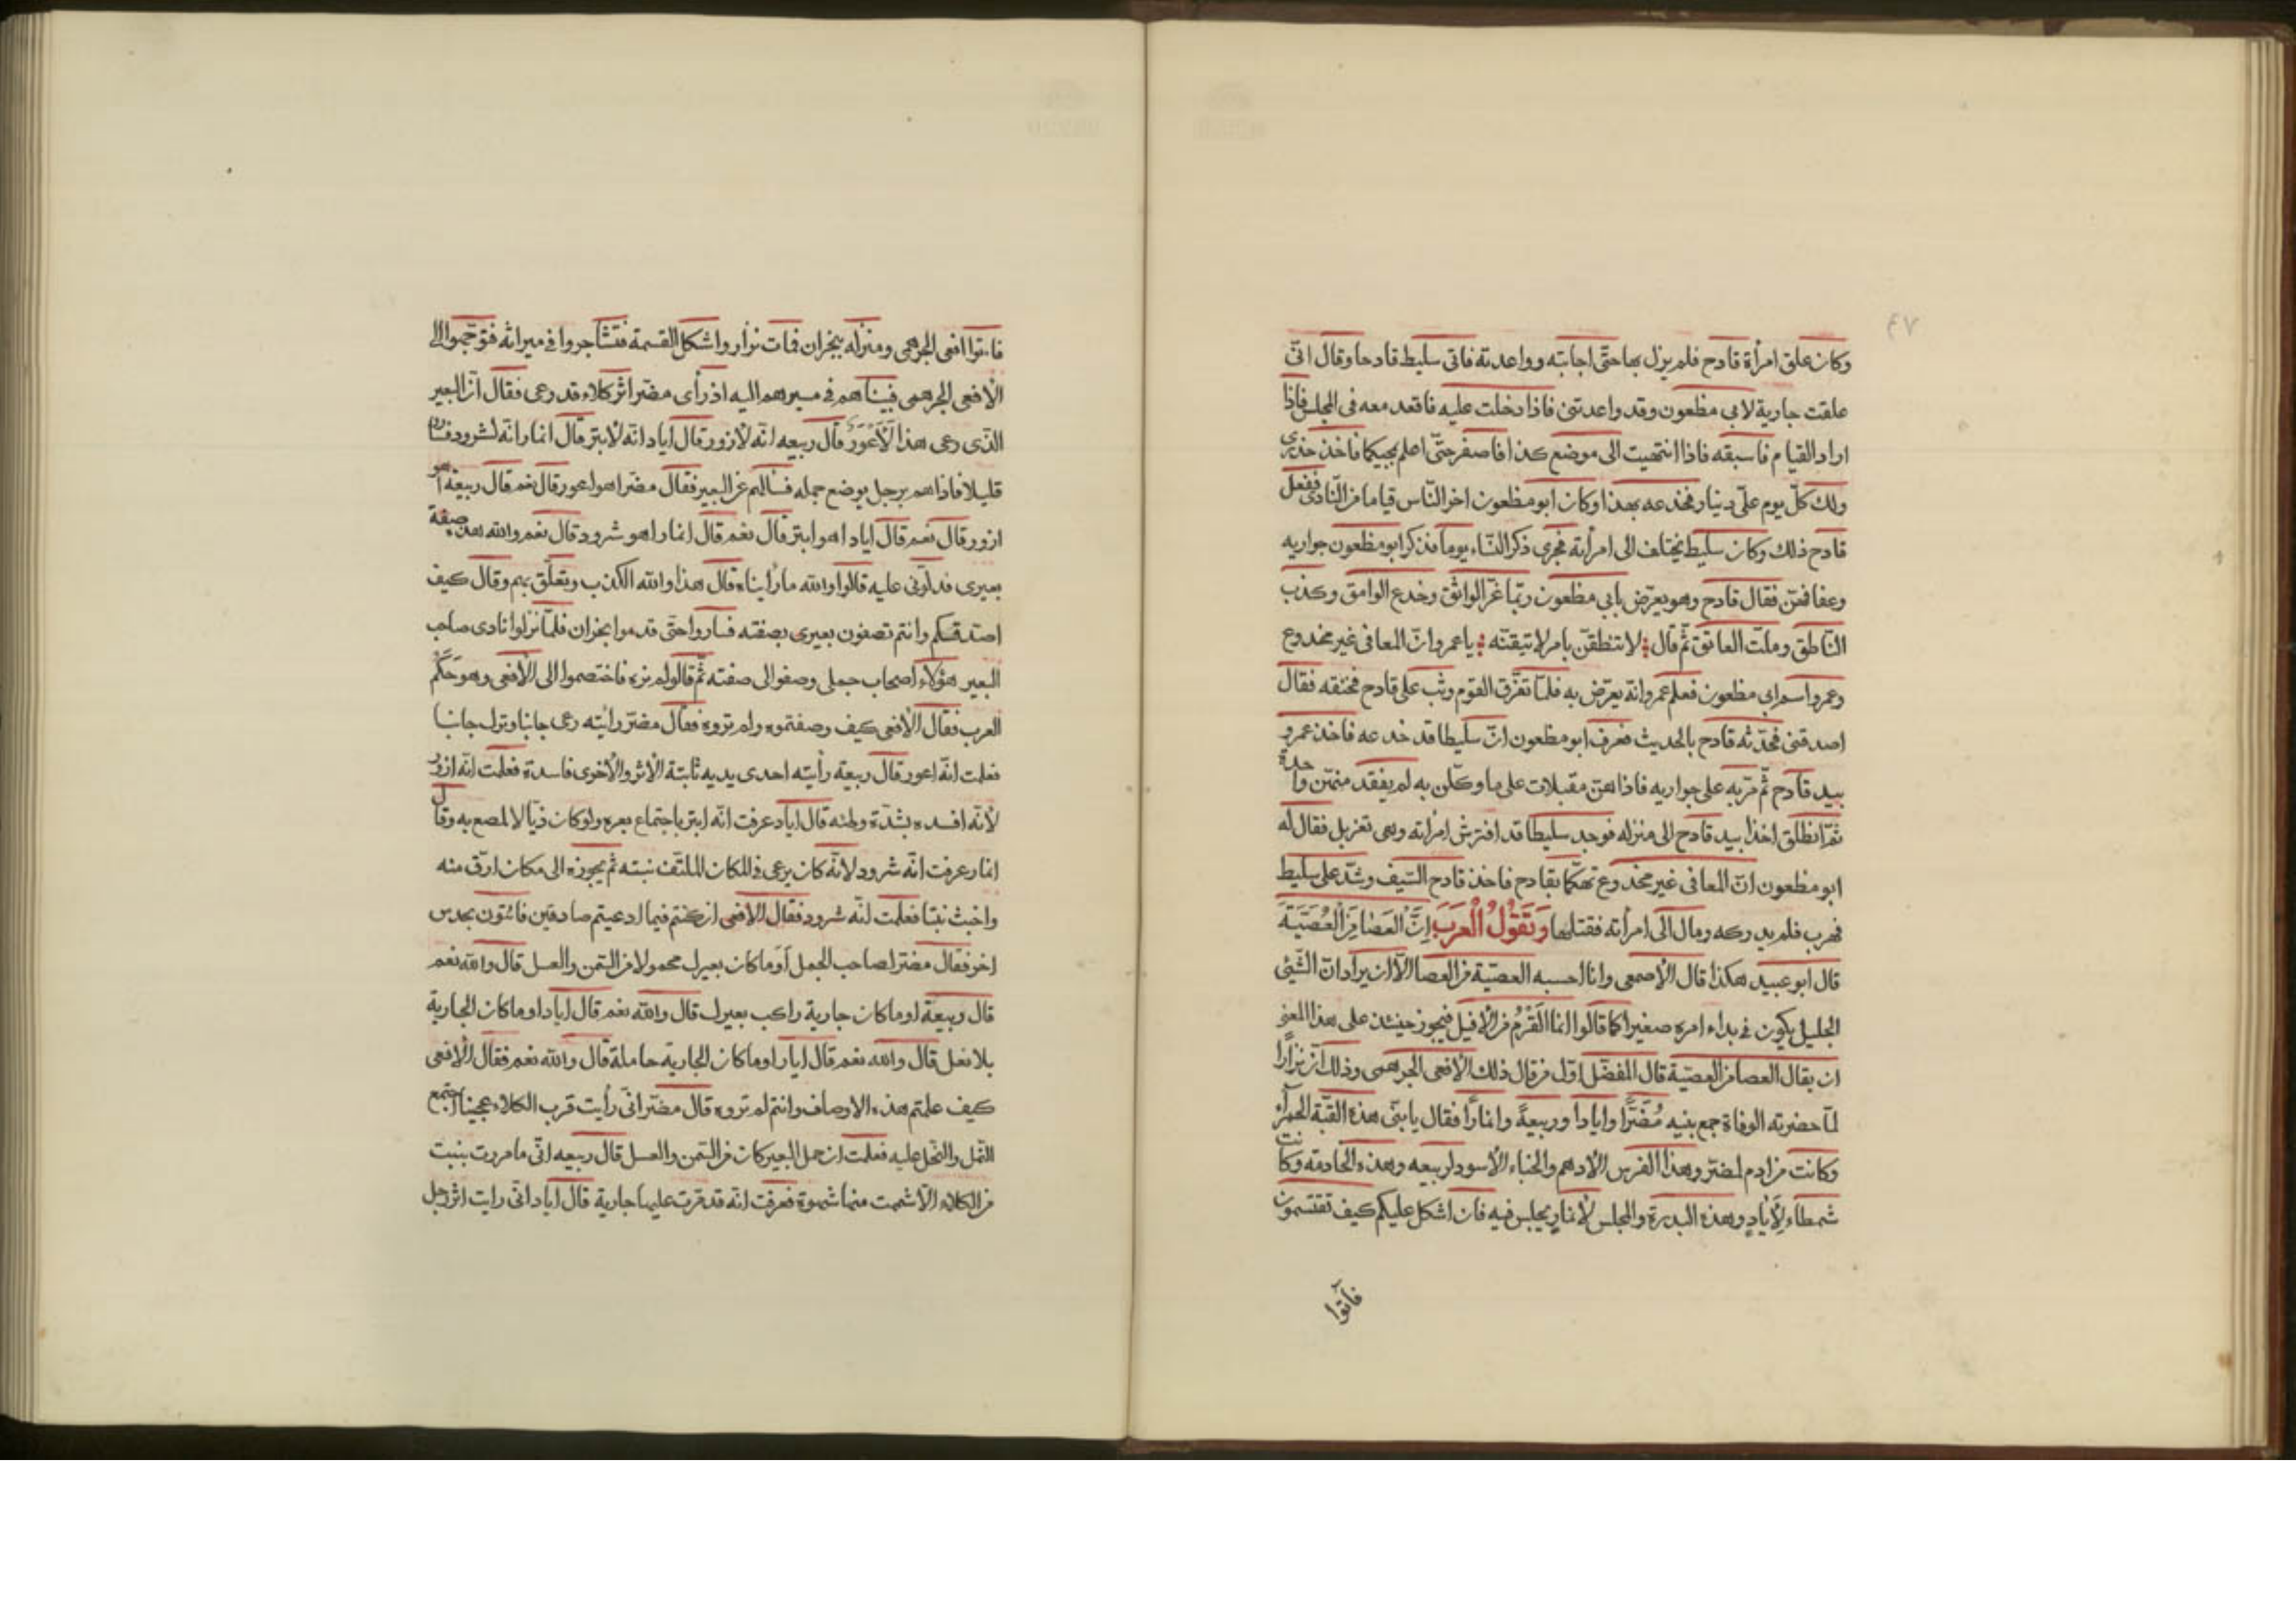 ٤٧
وكان علق امرأة قادح فلم يزل بها حتّى اجابته وواعدته فاتى سليط قادحا وقال انّى
علقت جارية لابي مظعون وقد واعدتنى فاذا دخلت عليه فاقعد معه فى المجلس فاذا
اراد القيام فاسبقه فاذا انتهيت الى موضع كذا فاصفر حتّى اعلم بمجيكما فاخذ حذرى
ولك كلّ يوم علىّ دينار فخدعه بهذا وكان ابو مظعون اخر النّاس قياما من النّادى ففعل
قادح ذلك وكان سليط يختلف الى امرأته فجرى ذكر النّساء يوما فذكر ابو مظعون جواريه
وعفافهنّ فقال قادح وهو يعرّض بابي مظعون ربّما غرّ الواثق وخدع الوامق وكذب
النّاطق وملّت العاتق ثمّ قال لا تنطقنّ بامر لا تيقنّه يا عمرو انّ المعافى غير مخدوع
وعمرو اسم ابى مظعون فعلم عمرو انّه يعرّض به فلمّا تفرّق القوم وثب على قادح فخنقه فقال
اصدقنى فحدّثه قادح بالحديث فعرف ابو مظعون انّ سليطا قد خدعه فاخذ عمرو
بيد قادح ثمّ مرّ به على جواريه فاذا هنّ مقبلات على ما وكلّن به لم يفقد منهنّ واحدة
ثمّ انطلق اخذا بيد قادح الى منزله فوجد سليطا قد افترش امرأته وهى تغربل فقال له
ابو مظعون انّ المعافى غير مخدوع تهكّما بقادح فاخذ قادح السّيف وشدّ على سليط
فهرب فلم يدركه ومال الى امرأته فقتلها وَتَقُولُ الْعَرَبَ اِنَّ الْعَصَا مِنَ الْعُصَيَّة
قال ابو عبيد هكذا قال الاصمعى وانا احسبه العصيّة من العصا الّا ان يراد انّ الشّىء
الجليل يكون فى بداء امره صغيرا كما قالوا انما القَرْمُ من الافيل فيجوز حينئذ على هذا المعنى
ان يقال العصا من العصيّة قال المفضّل اوّل من قال ذلك الافعى الجرهمى وذلك انّ نزارًا
لمّا حضرته الوفاة جمع بنيه مُضَرًا وايادا وربيعةً وانمارًا فقال يا بنىّ هذه القبّة الحمرآء
وكانت من ادم لمضر وهذا الفرس الادهم والخباء الاسود لربيعه وهذه الخادمه وكانت
شمطاء لِاَيَادٍ وهذه البدرة والمجلس لانمارٍ يجلس فيه فان اشكل عليكم كيف تقتسمون
فآتوا
فاتوا افعى الجرهمى ومنزله بنجران فمات نزار واشكل القسمة فتشاجروا فى ميراثه فتوجّهوا الى
الافعى الجرهمى فبيناهم فى مسيرهم اليه اذ رأى مضر اثر كلاء قد رعى فقال انّ البعير
الّذى رعى هذا لَاَعْوَرُ قال ربيعه انّه لازور قال اياد انّه لابتر قال انمار انّه لشرود فساروا
قليلا فاذاهم برجل يوضع جمله فسألهم عن البعير فقال مضر اهو اعور قال نعم قال ربيعة اهو
ازور قال نعم قال اياد اهو ابتر قال نعم قال انمار اهو شرود قال نعم والله هذه صفة
بعيرى فدلّونى عليه قالوا والله ما رأيناه قال هذا والله الكذب وتعلّق بهم وقال كيف
اصدقكم وانتم تصفون بعيرى بصفته فساروا حتى قدموا نجران فلمّا نزلوا نادى صاحب
البعير هؤلاء اصحاب جملى وصفوا لى صفته ثمّ قالوا لم نره فاختصموا الى الافعى وهو حَكَمُ
العرب فقال الافعى كيف وصفتموه ولم تروه فقال مضر رأيته رعى جانبا وترك جانبا
فعلمت انّه اعور قال ربيعة رأيته احدى يديه ثابتة الاثر والاخرى فاسدة فعلمت انّه ازور
لانّه افسده بشدّة وطئه قال اياد عرفت انّه ابتر باجتماع بعره ولو كان ذيّالا لمصع به وقال
انمار عرفت انّه شرود لانّه كان يرعى فى المكان الملتفّ نبته ثم يجوزه الى مكان ارقّ منه
واخبث نبتا فعلمت انّه شرود فقال الافعى ان كنتم فيما ادعيتم صادقين فائتون بحدس
اخر فقال مضر لصاحب الجمل أَوَما كان بعيرك محمولا من السّمن والعسل قال والله نعم
قال ربيعة اوما كان جارية راكب بعيرك قال والله نعم قال اياد اوما كان الجارية
بلا نعل قال والله نعم قال انمار اوما كان الجارية حاملة قال والله نعم فقال الافعى
كيف علمتم هذه الاوصاف وانتم لم تروه قال مضر انّى رأيت قرب الكلاء عجينا اجتمع
النّمل والنّحل عليه فعلمت ان حمل البعير كان من السّمن والعسل قال ربيعه انّى ما مررت بنبت
من الكلاء الّا شممت منها شموة فعرفت انّه قد مرّت عليها جارية قال اياد انّى رايت اثر رجل